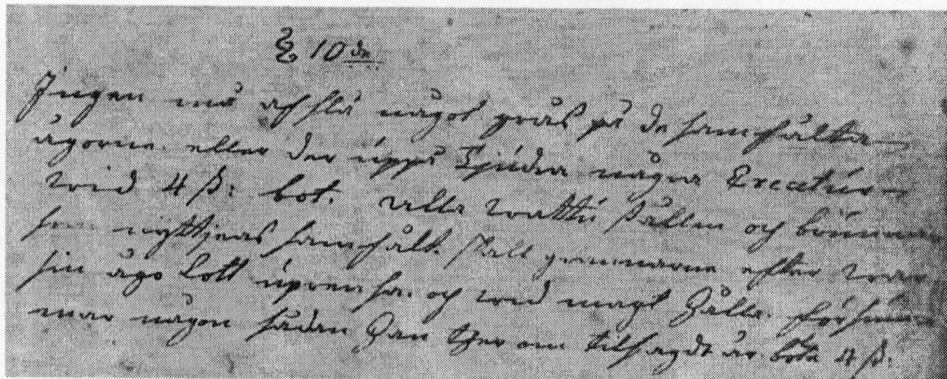 § 10de
Ingen må afslå något gräs på de samfälta
ägorne. eller der uppå Tjudra några Creatur
wid 4 ß: bot. Alla wattu ställen och brunnar
som nyttjeas samfält. skall grannarne efter war
sin ägo lott uprensa. och wid magt hålla. försum-
mar någon sådan han ther om tilsagdt är böte 4 ß.